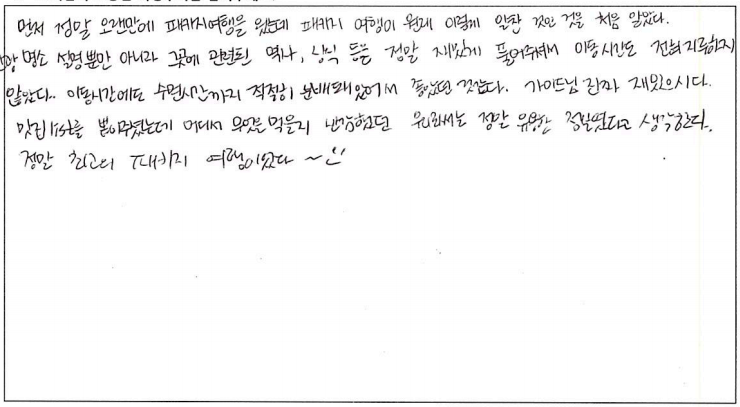 먼저 정말 오랜만에 패키지여행을 왔는데 패키지 여행이 원래 이렇게 알찬 것인 것을 처음 알았다.
관광 명소 설명뿐만 아니라 그곳에 관련된 역사, 상식 등을 정말 재밌게 풀어주셔서 이동시간도 전혀 지루하지
않았다.. 이동시간에도 수면시간까지 적절히 분배돼있어서 좋았던 것같다. 가이드님 진짜 재밌으시다.
맛집 list를 뽑아주셨는데 어디서 무엇을 먹을지 난감했던 우리에게는 정말 유용한 정보였다고 생각한다.
정말 최고의 패키지 여행이었다 ~